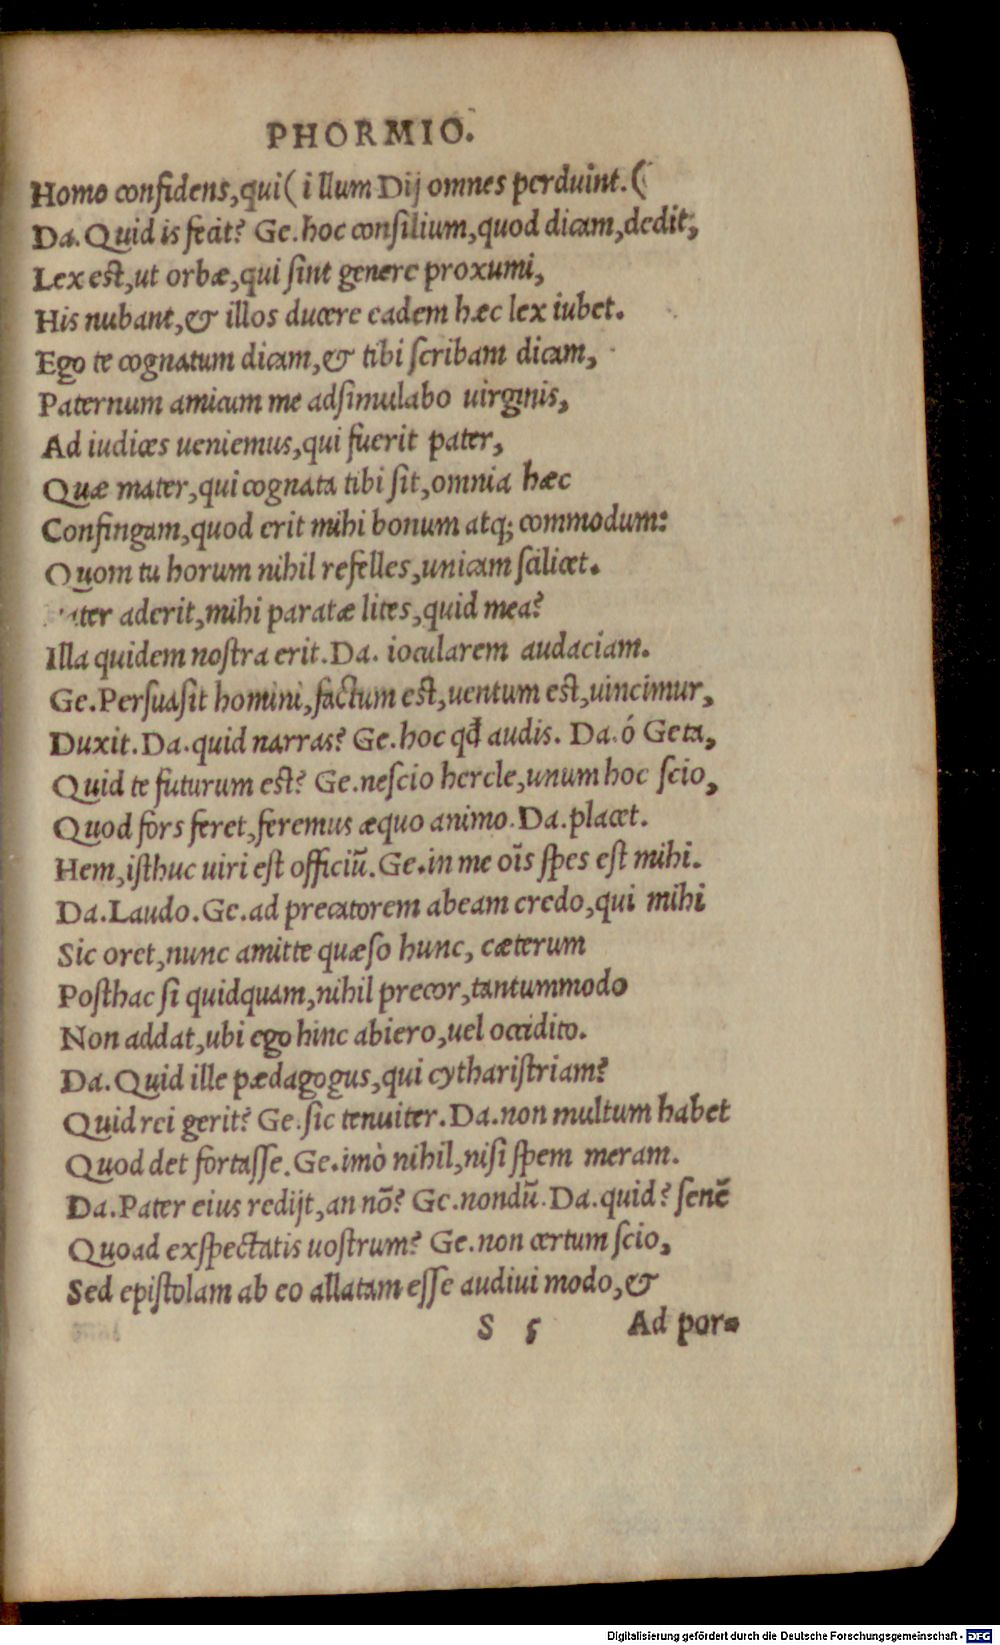 PHORMIO.
Homo confidens,qui( illum Dij omnes perduint.(
Da.Quid is fecit? Ge.hoc consilium,quod dicam,dedit;
Lex est,ut orbæ,qui sint genere proxumi,
His nubant,& illos ducere eadem hæc lex iubet.
Ego te cognatum dicam,& tibi scribam dicam,
Paternum amicum me adsimulabo uirginis,
Ad iudices ueniemus,qui fuerit pater,
Quæ mater,qui cognata tibi sit,omnia hæc
Confingam,quod erit mihi bonum atq; commodum:
Quom tu horum nihil refelles,unicam scilicet.
ater aderit,mihi paratæ lites,quid mea?
Illa quidem nostra erit.Da. iocularem audaciam.
Ge.Persuasit homini,factum est,uentum est,uincimur,
Duxit.Da.quid narras? Ge.hoc qđ audis. Da.ó Geta,
Quid te futurum est? Ge.nescio hercle,unum hoc scio,
Quod fors feret,feremus æquo animo.Da.placet.
Hem,isthuc uiri est officiū.Ge.in me oīs spes est mihi.
Da.Laudo.Ge.ad precatorem abeam credo,qui mihi
Sic oret,nunc amitte quæso hunc, cæterum
Posthac si quidquam,nihil precor,tantummodo
Non addat,ubi ego hinc abiero,uel occidito.
Da.Quid ille pædagogus,qui cytharistriam?
Quid rei gerit? Ge.sic tenuiter.Da.non multum habet
Quod det fortasse.Ge.imò nihil,nisi spem meram.
Da.Pater eius redijt,an nō? Ge.nondū.Da.quid? senē
Quoad exspectatis uostrum? Ge.non certum scio,
Sed epistolam ab eo allatam esse audiui modo,&
S 5 Ad por=
Digitalisierung gefördert durch die Deutsche Forschungsgemeinschaft - DFG